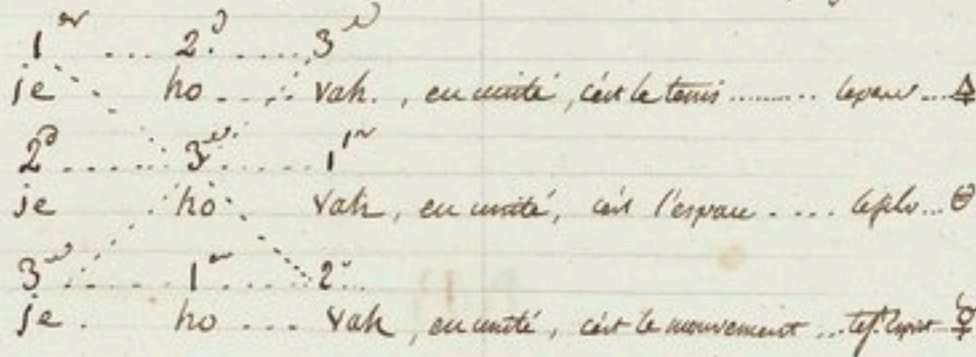 1er ... 2d ... 3e
je ho ... vah, en unité, c'est le tems ......... 🜍
2d ..... 3e ..... 1er
je ho vah, en unité, c'est l'espace .... 🜔
3e ..... 1er ..... 2d
je . ho ... vah, en unité, c'est le mouvement ... ☿